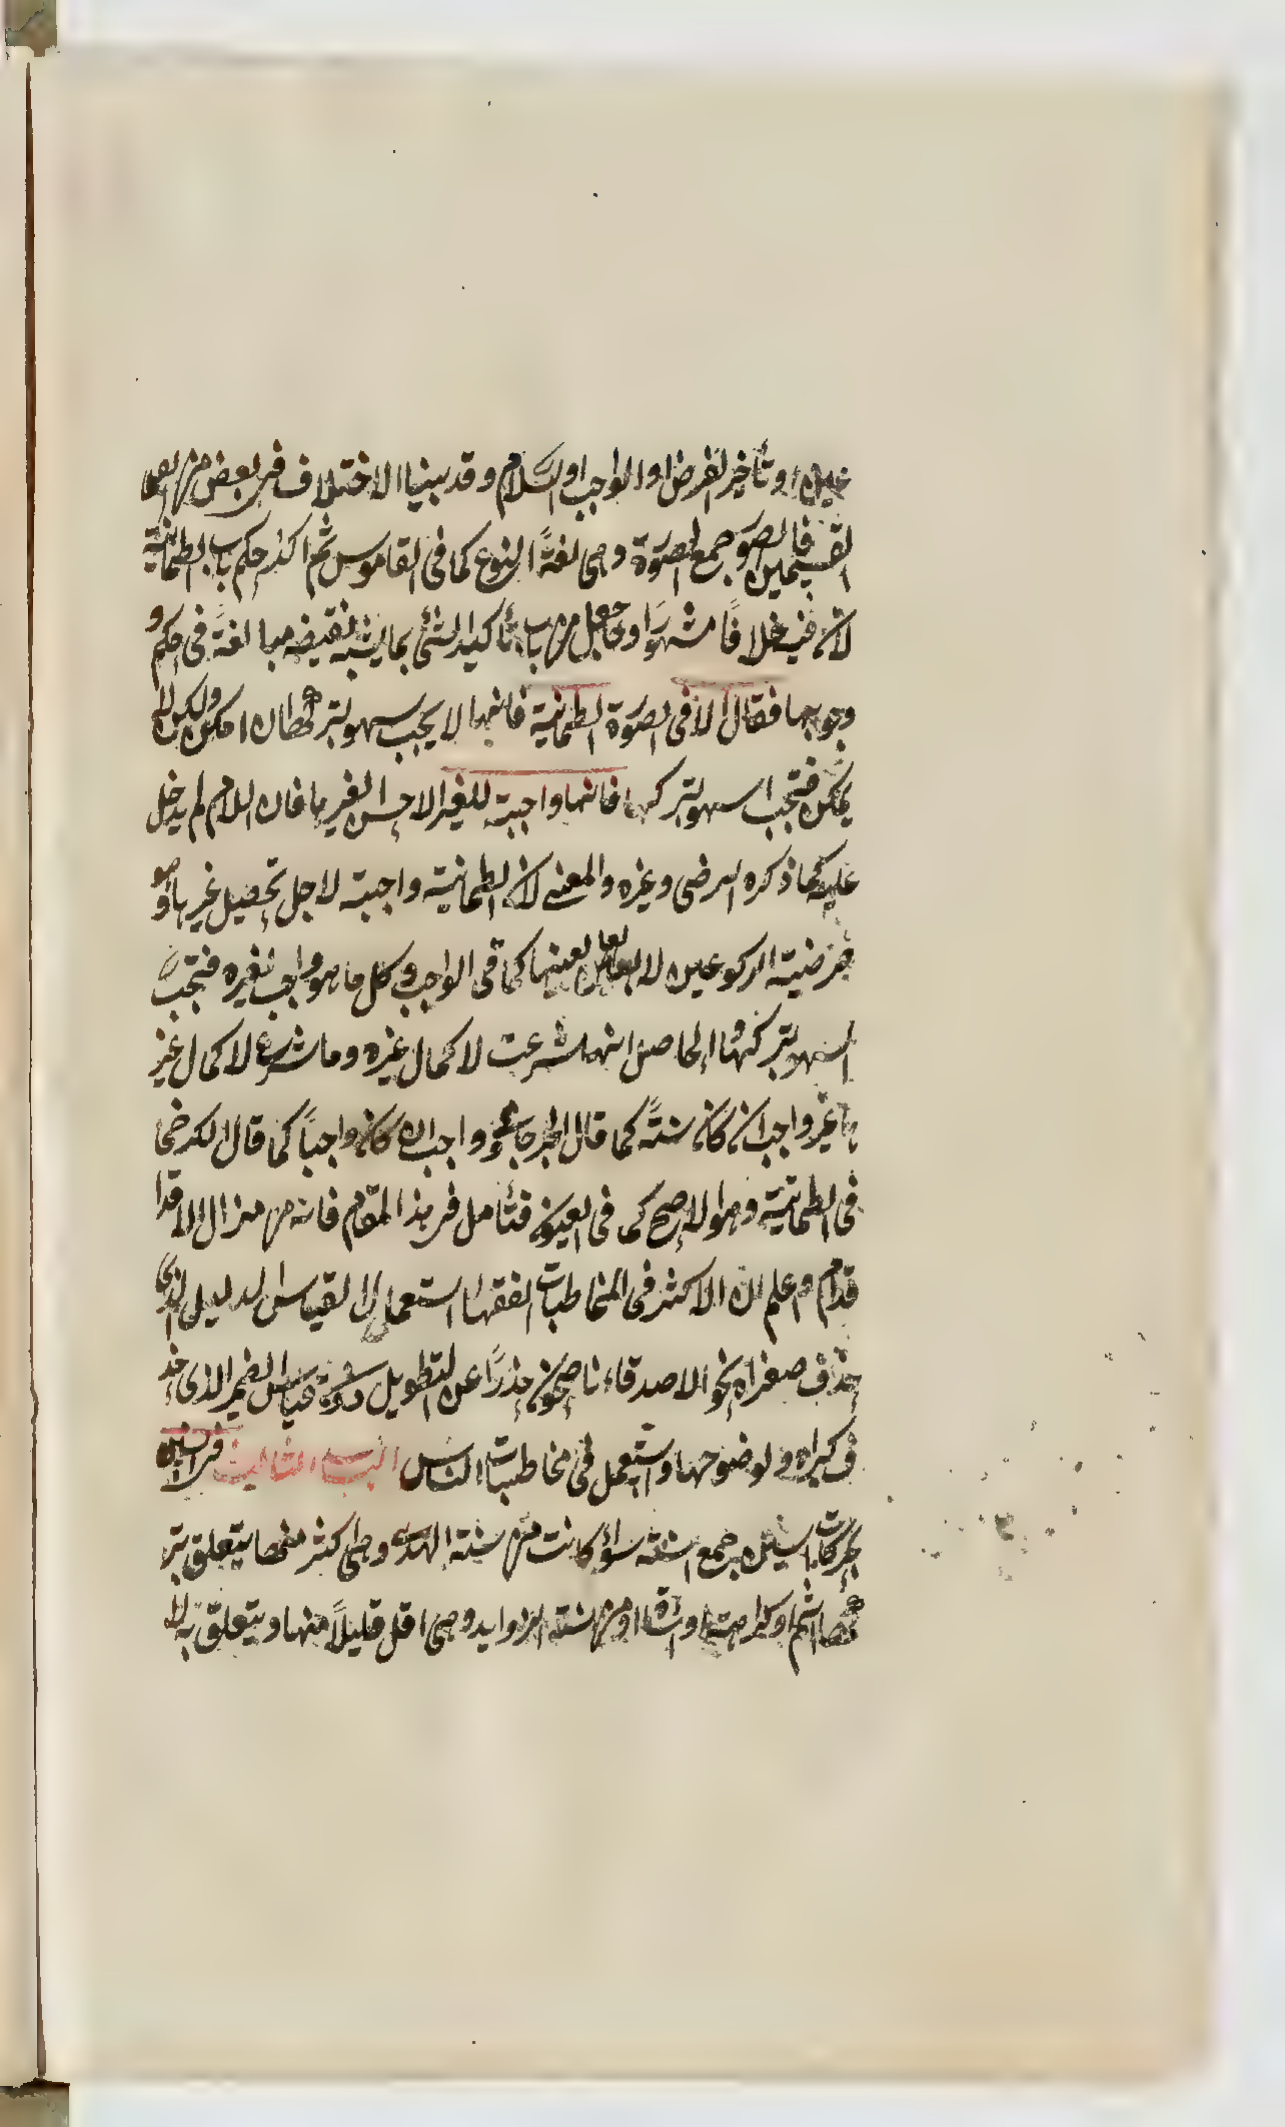 او تأخير الفرض او الواجب او السلام وقد بينا الاختلاف في بعض من
القسمين فالصور جمع الصورة وهي لغةً النوع كما في القاموس ثم اكد حكم باب الطمانينة
لان فيه خلافًا مشهورا وجعل من باب تأكيد الشئ بما يشبه نقيضه مبالغة في حكم
وجوبها فقال الا في الصورة الطمانينة فانها لا يجب سهو بتر كها ان امكن ولكن لا
يمكن فتجب سهو بتر كها فانها واجبة للغير الاحسن لغيرها فان اللام لم يدخل
عليه كما ذكره الرضي وغيره والمعنى لان الطمانينة واجبة لاجل تحصيل غيرها وهو
فرضية الركوعين لا لعينها كما في الواجب وكل ما هو واجب لغيره فتجب
السهو بتر كها والحاصل انها شرعت لاكمال غيره وما شرع لاكمال غير
ها غير واجب ان كان سنةً كما قال الجرجاني وواجب ان كان واجبًا كما قال الكرخي
في الطمانينة وهو الاصح كما في العيون فتأمل في هذا المقام فانه من مزال الاقدا
قدام واعلم ان الاكثر في المخاطبات الفقهاء استعمال القياس الدليل الذي
حذف صغراه نحو الاصدقاء ناصحون حذرًا عن التطويل قياس الضمير الذي حذ
ف كبراه ولوضوحها واستعمل في مخاطبات الناس الباب الثالث في السنن
بحركات السين جمع السنة سواء كانت من سنة الهدى وهي كثر مما يتعلق بتر
كها اثم او كراهتها او من سنة الزوايد وهي اقل قليلاً منها ويتعلق به لا